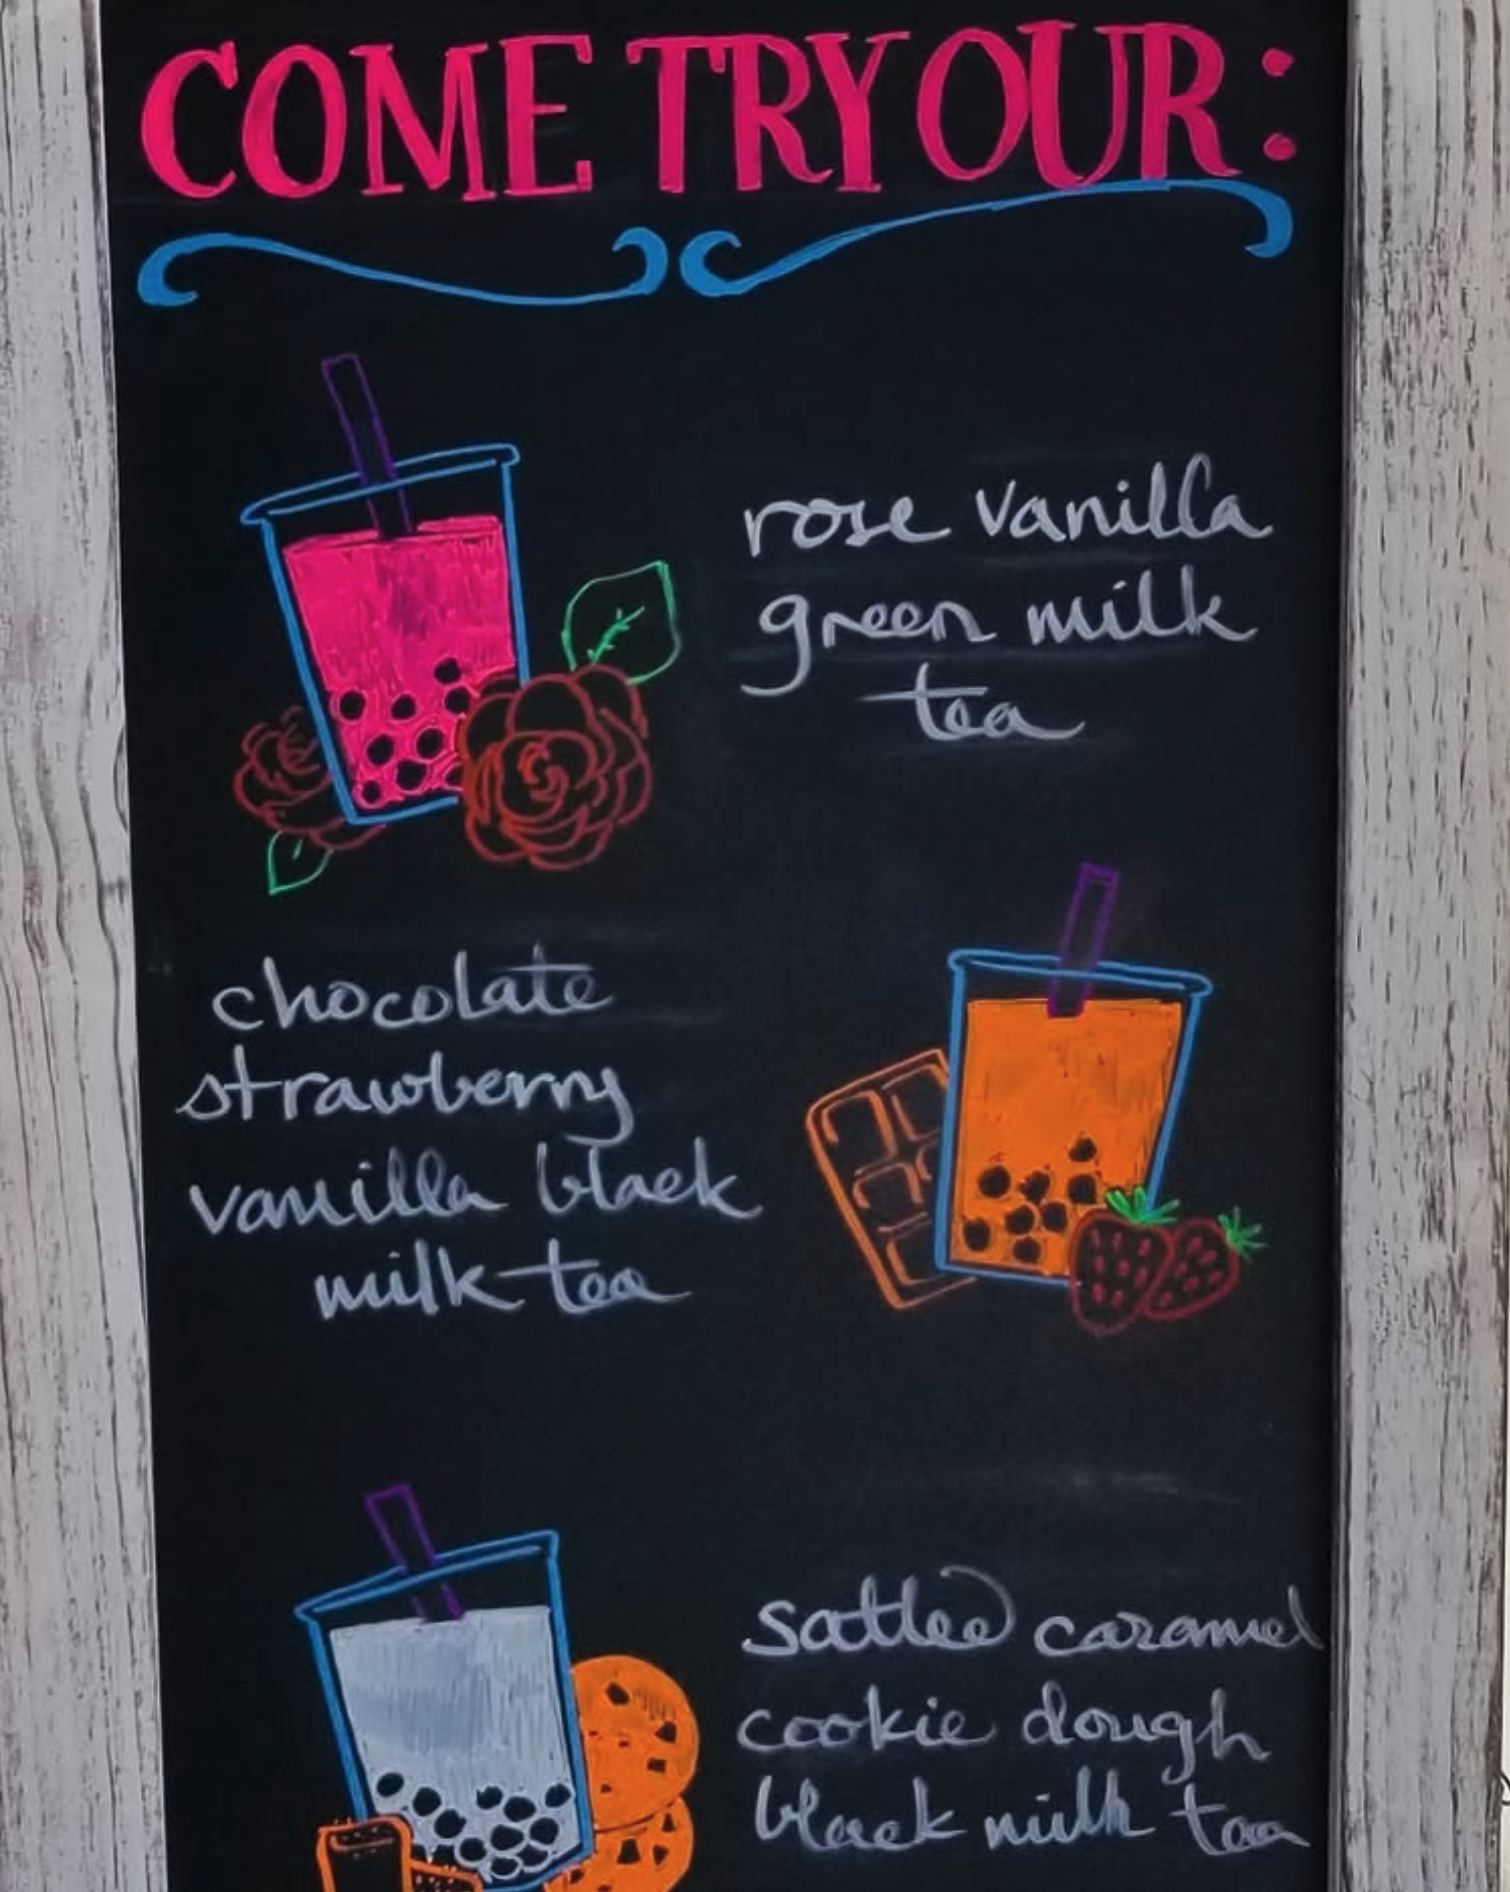 COME TRY OUR:
rose vanilla
green milk
tea
chocolate
strawberry
vanilla black
milk tea
salted caramel
cookie dough
black milk tea